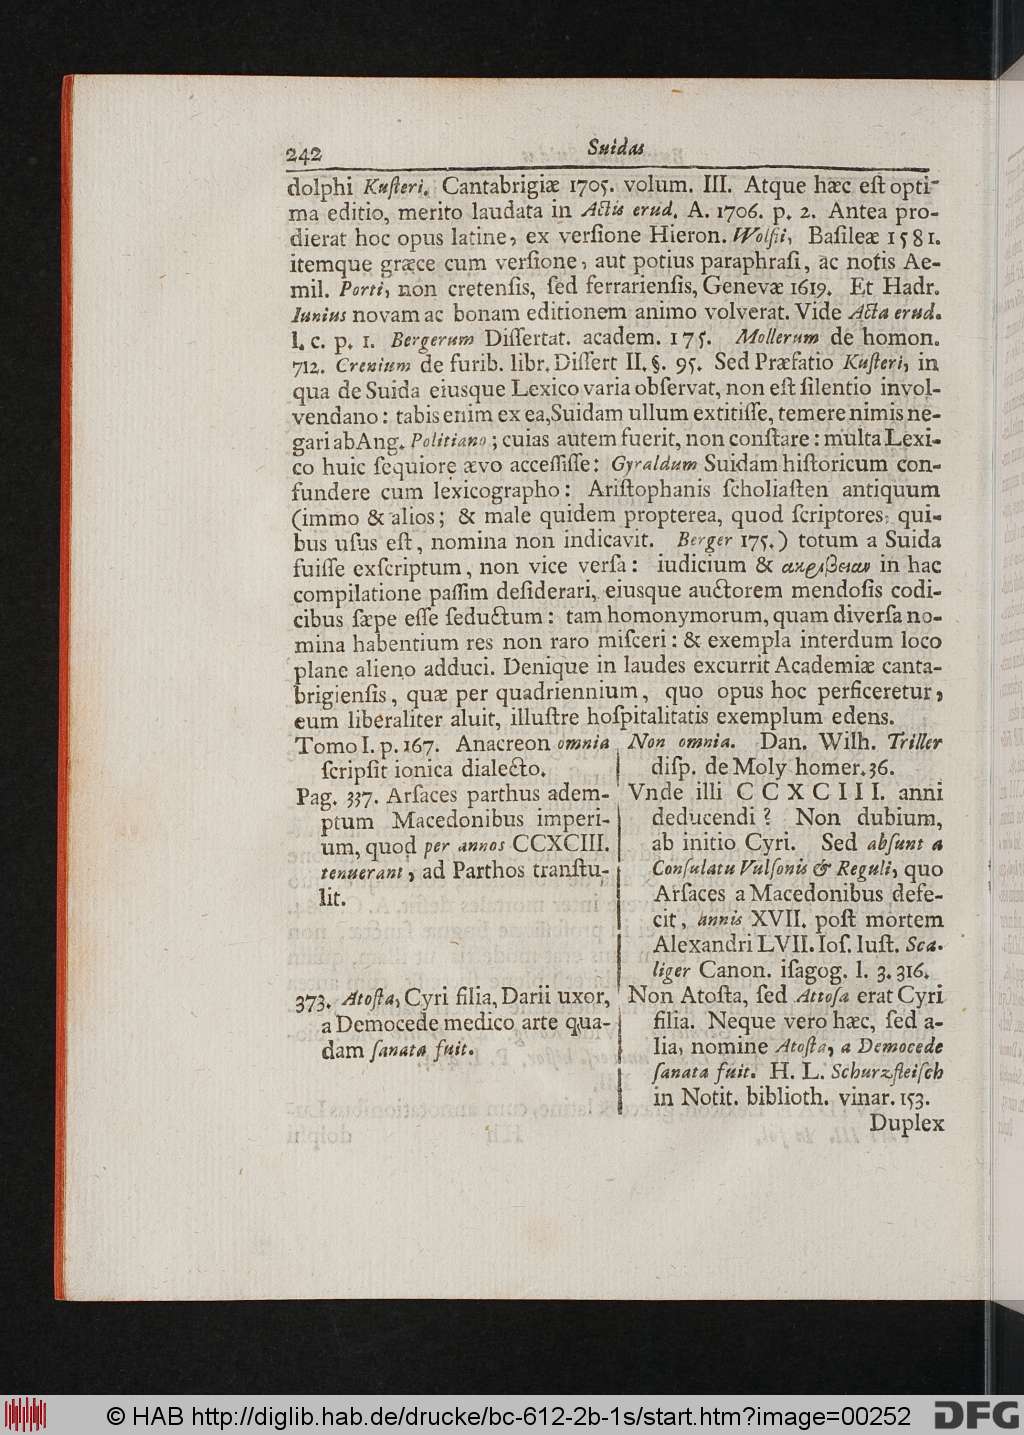 242
Suidas
dolphi Kuſteri. Cantabrigiæ 1705. volum. III. Atque hæc eſt opti-
ma editio, merito laudata in Actis erud. A. 1706. p. 2. Antea pro-
dierat hoc opus latine, ex verſione Hieron. Wolfii, Baſileæ 1581.
itemque græce cum verſione, aut potius paraphraſi, ac notis Ae-
mil. Porti, non cretenſis, ſed ferrarienſis, Genevæ 1619. Et Hadr.
Iunius novam ac bonam editionem animo volverat. Vide Acta erud.
l. c. p. 1. Bergerum Diſſertat. academ. 175. Mollerum de homon.
712. Crenium de furib. libr. Diſſert II. §. 95. Sed Præfatio Kuſteri, in
qua de Suida eiusque Lexico varia obſervat, non eſt ſilentio invol-
vendano: tabis enim ex ea, Suidam ullum extitiſſe, temere nimis ne-
gari ab Ang. Politiano; cuias autem fuerit, non conſtare: multa Lexi-
co huic ſequiore ævo acceſſiſſe: Gyraldum Suidam hiſtoricum con-
fundere cum lexicographo: Ariſtophanis ſcholiaſten antiquum
(immo & alios; & male quidem propterea, quod ſcriptores, qui-
bus uſus eſt, nomina non indicavit. Berger 175.) totum a Suida
fuiſſe exſcriptum, non vice verſa: iudicium & ακριβειαν in hac
compilatione paſſim deſiderari, eiusque auctorem mendoſis codi-
cibus ſæpe eſſe ſeductum: tam homonymorum, quam diverſa no-
mina habentium res non raro miſceri: & exempla interdum loco
plane alieno adduci. Denique in laudes excurrit Academiæ canta-
brigienſis, quæ per quadriennium, quo opus hoc perficeretur,
eum liberaliter aluit, illuſtre hoſpitalitatis exemplum edens.
Tomo I. p. 167. Anacreon omnia
ſcripſit ionica dialecto.
Pag. 337. Arſaces parthus adem-
ptum Macedonibus imperi-
um, quod per annos CCXCIII.
tenuerant, ad Parthos tranſtu-
lit.
373. Atoſta, Cyri filia, Darii uxor,
a Democede medico arte qua-
dam ſanata fuit.
Non omnia. Dan. Wilh. Triller
diſp. de Moly homer. 36.
Vnde illi CCXCIII. anni
deducendi? Non dubium,
ab initio Cyri. Sed abſunt a
Conſulatu Vulſonis & Reguli, quo
Arſaces a Macedonibus defe-
cit, annis XVII. poſt mortem
Alexandri LVII. Ioſ. Iuſt. Sca-
liger Canon. iſagog. l. 3. 316.
Non Atoſta, ſed Attoſa erat Cyri
filia. Neque vero hæc, ſed a-
lia, nomine Atoſta, a Democede
ſanata fuit. H. L. Schurzfleiſch
in Notit. biblioth. vinar. 153.
Duplex
© HAB http://diglib.hab.de/drucke/bc-612-2b-1s/start.htm?image=00252
DFG